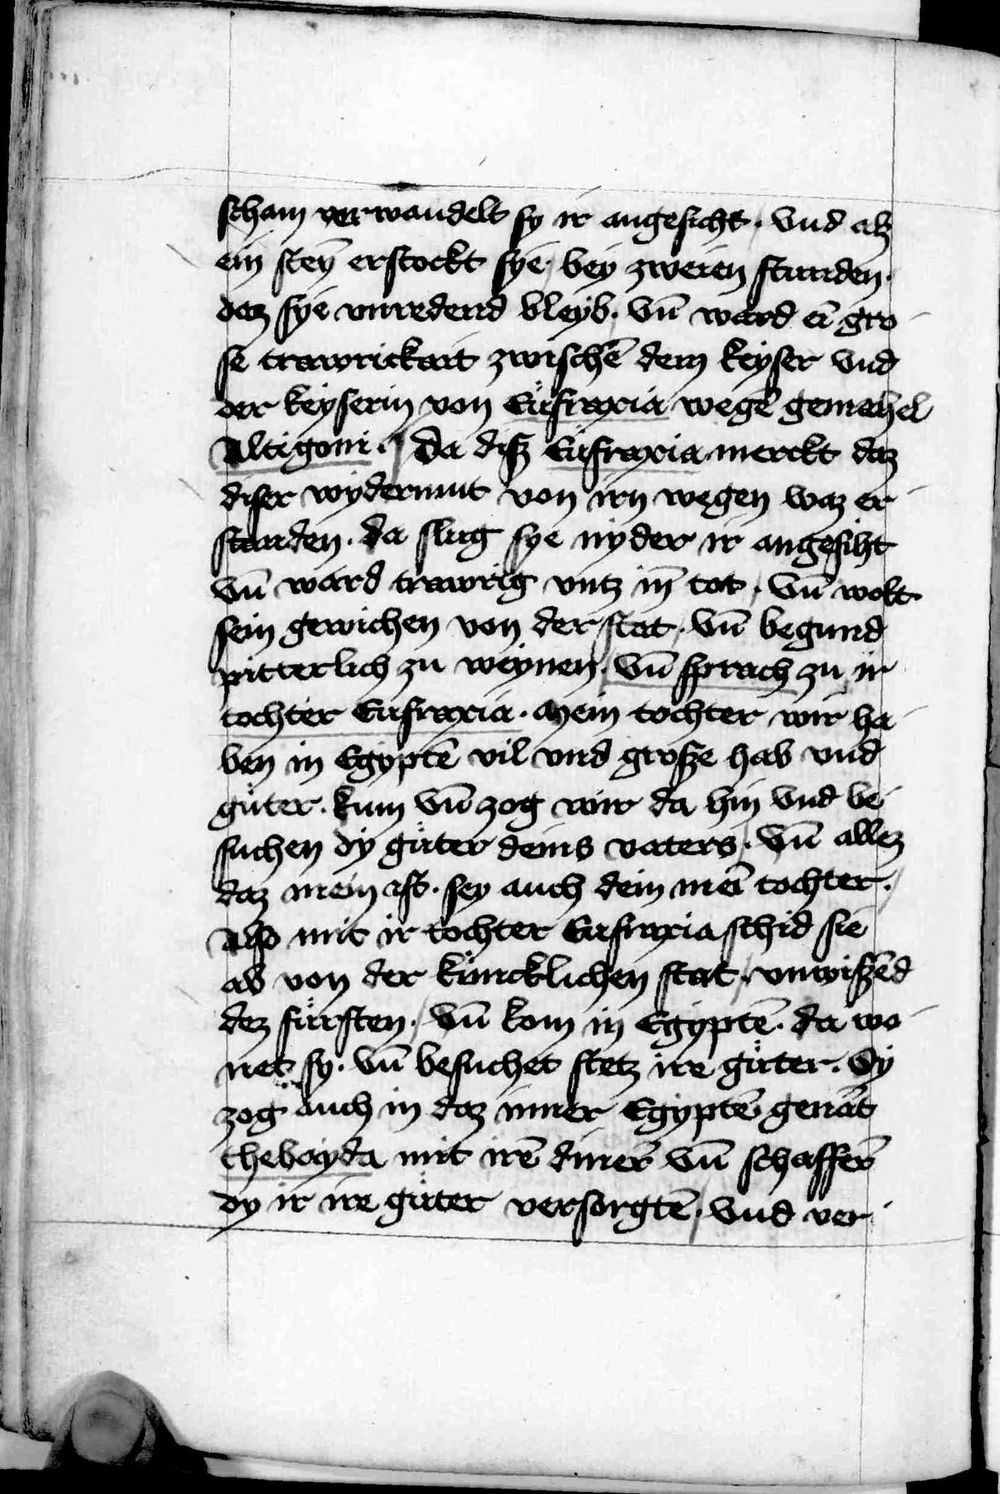 scham verwandelt sy ir angesicht · vnd alz
ein steÿ erstockt sye bey zweien stunden ·
daz sye vnredend bleyb · vn̄ ward eī gro
se trawrickait zwischē dem keyser vnd
der keyserin von Eufraxia wegē gemahel
Altigoni · Da disz Eufraxia merckt daz
diser wydermut von irn wegen waz er
standen · da slug sye nyder ir angesiht
vn̄ ward trawrig vntz in̄ tot · vn̄ wolt
sein gewichen von der stat · vn̄ begund
pitterlich zu weynen · vn̄ sprach zu ir
tochter Eufraxia · Mein tochter wir ha
ben in Egyptē vil vnd grosze hab vnd
gůter · kum vn̄ zog wir da hin vnd be
suchen dy gůter deins vaters · vn̄ allez
daz mein ist · sey auch dein meī tochter ·
Also mit ir tochter Eufraxia schid sie
ab von der kuncklichen stat · vnwiszēd
dez fürsten · vn̄ kom in Egyptē · da wo
net sy · vn̄ besuchet stetz ire gůter · Sy
zog auch in daz inner Egyptē genāt
thebayda mit irē dinerē vn̄ schafferē
dy ir ire gůter versorgtē · vnd ver